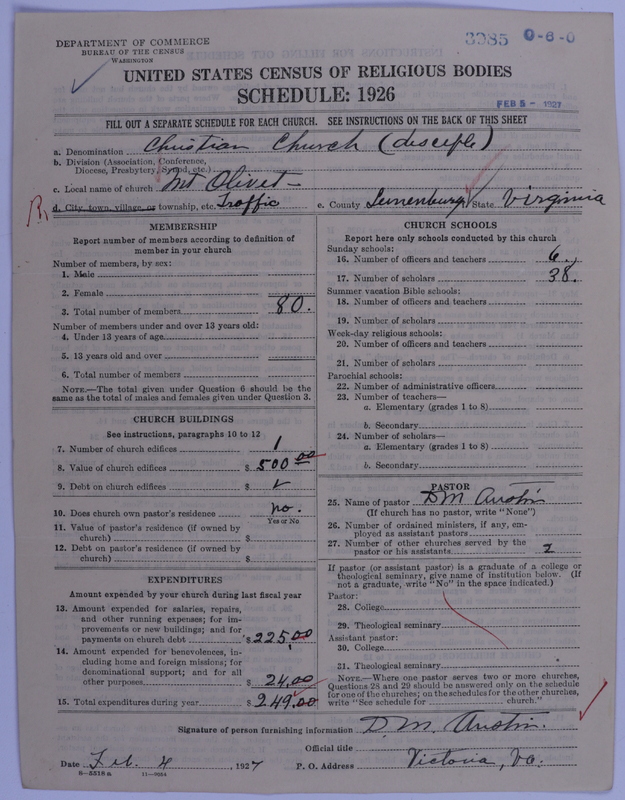 3985 0-6-0
DEPARTMENT OF COMMERCE
BUREAU OF THE CENSUS
WASHINGTON
UNITED STATES CENSUS OF RELIGIOUS BODIES
SCHEDULE: 1926
FEB 5 - 1927
FILL OUT A SEPARATE SCHEDULE FOR EACH CHURCH. SEE INSTRUCTIONS ON THE BACK OF THIS SHEET
a. Denomination Christian Church (disciple)
b. Division (Association, Conference,
Diocese, Presbytery, Synod, etc.)
c. Local name of church Mt Olivet
d. City, town, village, or township, etc. Traffic e. County Lunenburg State Virginia
MEMBERSHIP
Report number of members according to definition of
member in your church
Number of members, by sex:
1. Male
2. Female
3. Total number of members 80.
Number of members under and over 13 years old:
4. Under 13 years of age
5. 13 years old and over
6. Total number of members
NOTE.—The total given under Question 6 should be the
same as the total of males and females given under Question 3.
CHURCH BUILDINGS
See instructions, paragraphs 10 to 12
7. Number of church edifices 1
8. Value of church edifices $ 500 00
9. Debt on church edifices $
10. Does church own pastor's residence no.
Yes or No
11. Value of pastor's residence (if owned by
church) $
12. Debt on pastor's residence (if owned by
church) $
EXPENDITURES
Amount expended by your church during last fiscal year
13. Amount expended for salaries, repairs,
and other running expenses; for im-
provements or new buildings; and for
payments on church debt $ 225,00
14. Amount expended for benevolences, in-
cluding home and foreign missions; for
denominational support; and for all
other purposes $ 24,00
15. Total expenditures during year $ 249.00
CHURCH SCHOOLS
Report here only schools conducted by this church
Sunday schools:
16. Number of officers and teachers 6.
17. Number of scholars 38.
Summer vacation Bible schools:
18. Number of officers and teachers
19. Number of scholars
Week-day religious schools:
20. Number of officers and teachers
21. Number of scholars
Parochial schools:
22. Number of administrative officers
23. Number of teachers—
a. Elementary (grades 1 to 8)
b. Secondary
24. Number of scholars—
a. Elementary (grades 1 to 8)
b. Secondary
PASTOR
25. Name of pastor D M Austin
(If church has no pastor, write "None")
26. Number of ordained ministers, if any, em-
ployed as assistant pastors
27. Number of other churches served by the
pastor or his assistants 2
If pastor (or assistant pastor) is a graduate of a college or
theological seminary, give name of institution below. (If
not a graduate, write "No" in the space indicated.)
Pastor:
28. College
29. Theological seminary
Assistant pastor:
30. College
31. Theological seminary
NOTE.—Where one pastor serves two or more churches,
Questions 28 and 29 should be answered only on the schedule
for one of the churches; on the schedules for the other churches,
write "See schedule for church."
Signature of person furnishing information D. M. Austin.
Official title
Date Feb. 4, 1927 P. O. Address Victoria, Va.
8—5518 a 11—9684